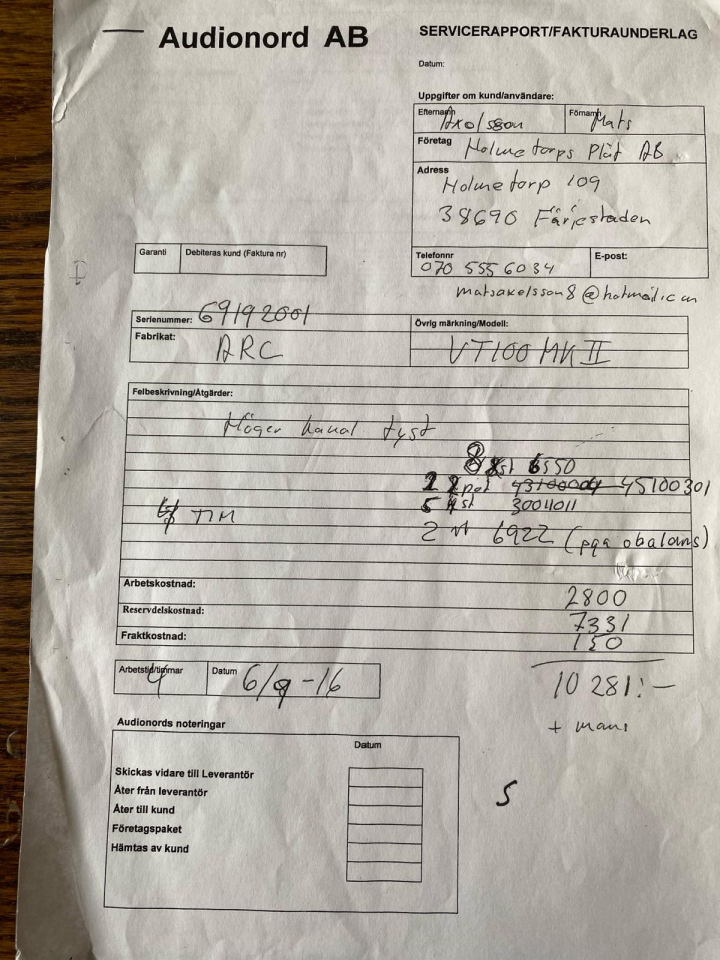 Audionord AB
SERVICERAPPORT/FAKTURAUNDERLAG
Datum:
Uppgifter om kund/användare:
Efternamn Axelsson Förnamn Mats
Företag Holmetorps Plåt AB
Adress
Holmetorp 109
38690 Färjestaden
Telefonnr E-post:
070 555 6034
matsaxelsson8@hotmail.com
Garanti Debiteras kund (Faktura nr)
Serienummer: 69192001 Övrig märkning/Modell:
Fabrikat: ARC VT100 MK II
Felbeskrivning/Åtgärder:
Höger kanal tyst
8 st 6550
2 pot 43100004 45100301
5 st 30011011
TIM
2 st 6922 (pga obalans)
Arbetskostnad: 2800
Reservdelskostnad: 7331
Fraktkostnad: 150
Arbetstid/timmar 4 Datum 6/9-16
10 281:-
+ moms
Audionords noteringar
Datum
Skickas vidare till Leverantör
Åter från leverantör
Åter till kund
Företagspaket
Hämtas av kund
S